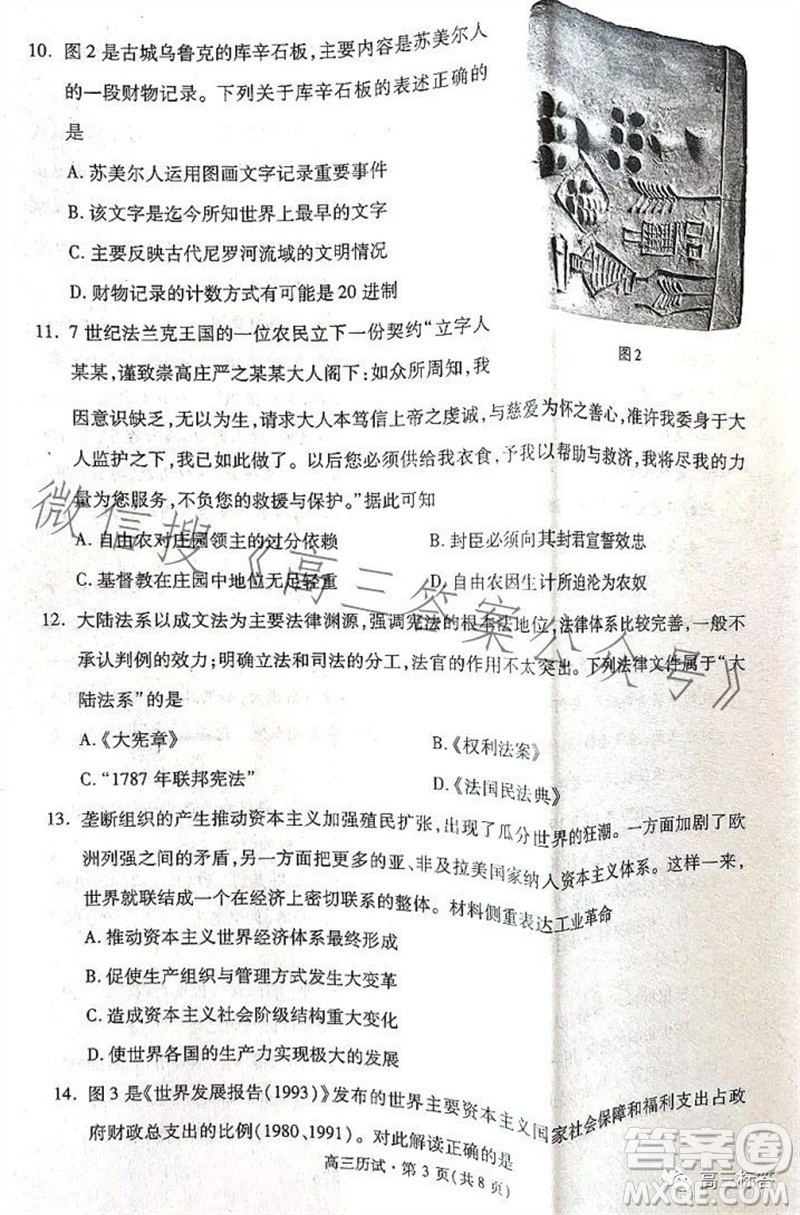 10. 图2是古城乌鲁克的库辛石板,主要内容是苏美尔人
的一段财物记录。下列关于库辛石板的表述正确的
是
A. 苏美尔人运用图画文字记录重要事件
B. 该文字是迄今所知世界上最早的文字
C. 主要反映古代尼罗河流域的文明情况
D. 财物记录的计数方式有可能是20进制
图2
11. 7世纪法兰克王国的一位农民立下一份契约“立字人
某某,谨致崇高庄严之某某大人阁下:如众所周知,我
因意识缺乏,无以为生,请求大人本笃信上帝之虔诚,与慈爱为怀之善心,准许我委身于大
人监护之下,我已如此做了。以后您必须供给我衣食,予我以帮助与救济,我将尽我的力
量为您服务,不负您的救援与保护。”据此可知
A. 自由农对庄园领主的过分依赖
B. 封臣必须向其封君宣誓效忠
C. 基督教在庄园中地位无足轻重
D. 自由农因生计所迫沦为农奴
12. 大陆法系以成文法为主要法律渊源,强调宪法的根本法地位,法律体系比较完善,一般不
承认判例的效力;明确立法和司法的分工,法官的作用不太突出。下列法律文件属于“大
陆法系”的是
A.《大宪章》
B.《权利法案》
C. “1787年联邦宪法”
D.《法国民法典》
13. 垄断组织的产生推动资本主义加强殖民扩张,出现了瓜分世界的狂潮。一方面加剧了欧
洲列强之间的矛盾,另一方面把更多的亚、非及拉美国家纳入资本主义体系。这样一来,
世界就联结成一个在经济上密切联系的整体。材料侧重表达工业革命
A. 推动资本主义世界经济体系最终形成
B. 促使生产组织与管理方式发生大变革
C. 造成资本主义社会阶级结构重大变化
D. 使世界各国的生产力实现极大的发展
14. 图3是《世界发展报告(1993)》发布的世界主要资本主义国家社会保障和福利支出占政
府财政总支出的比例(1980、1991)。对此解读正确的是
高三历试·第3页(共8页)
微信搜《高三答案公众号》
答案圈
高三标答
MXQE.COM